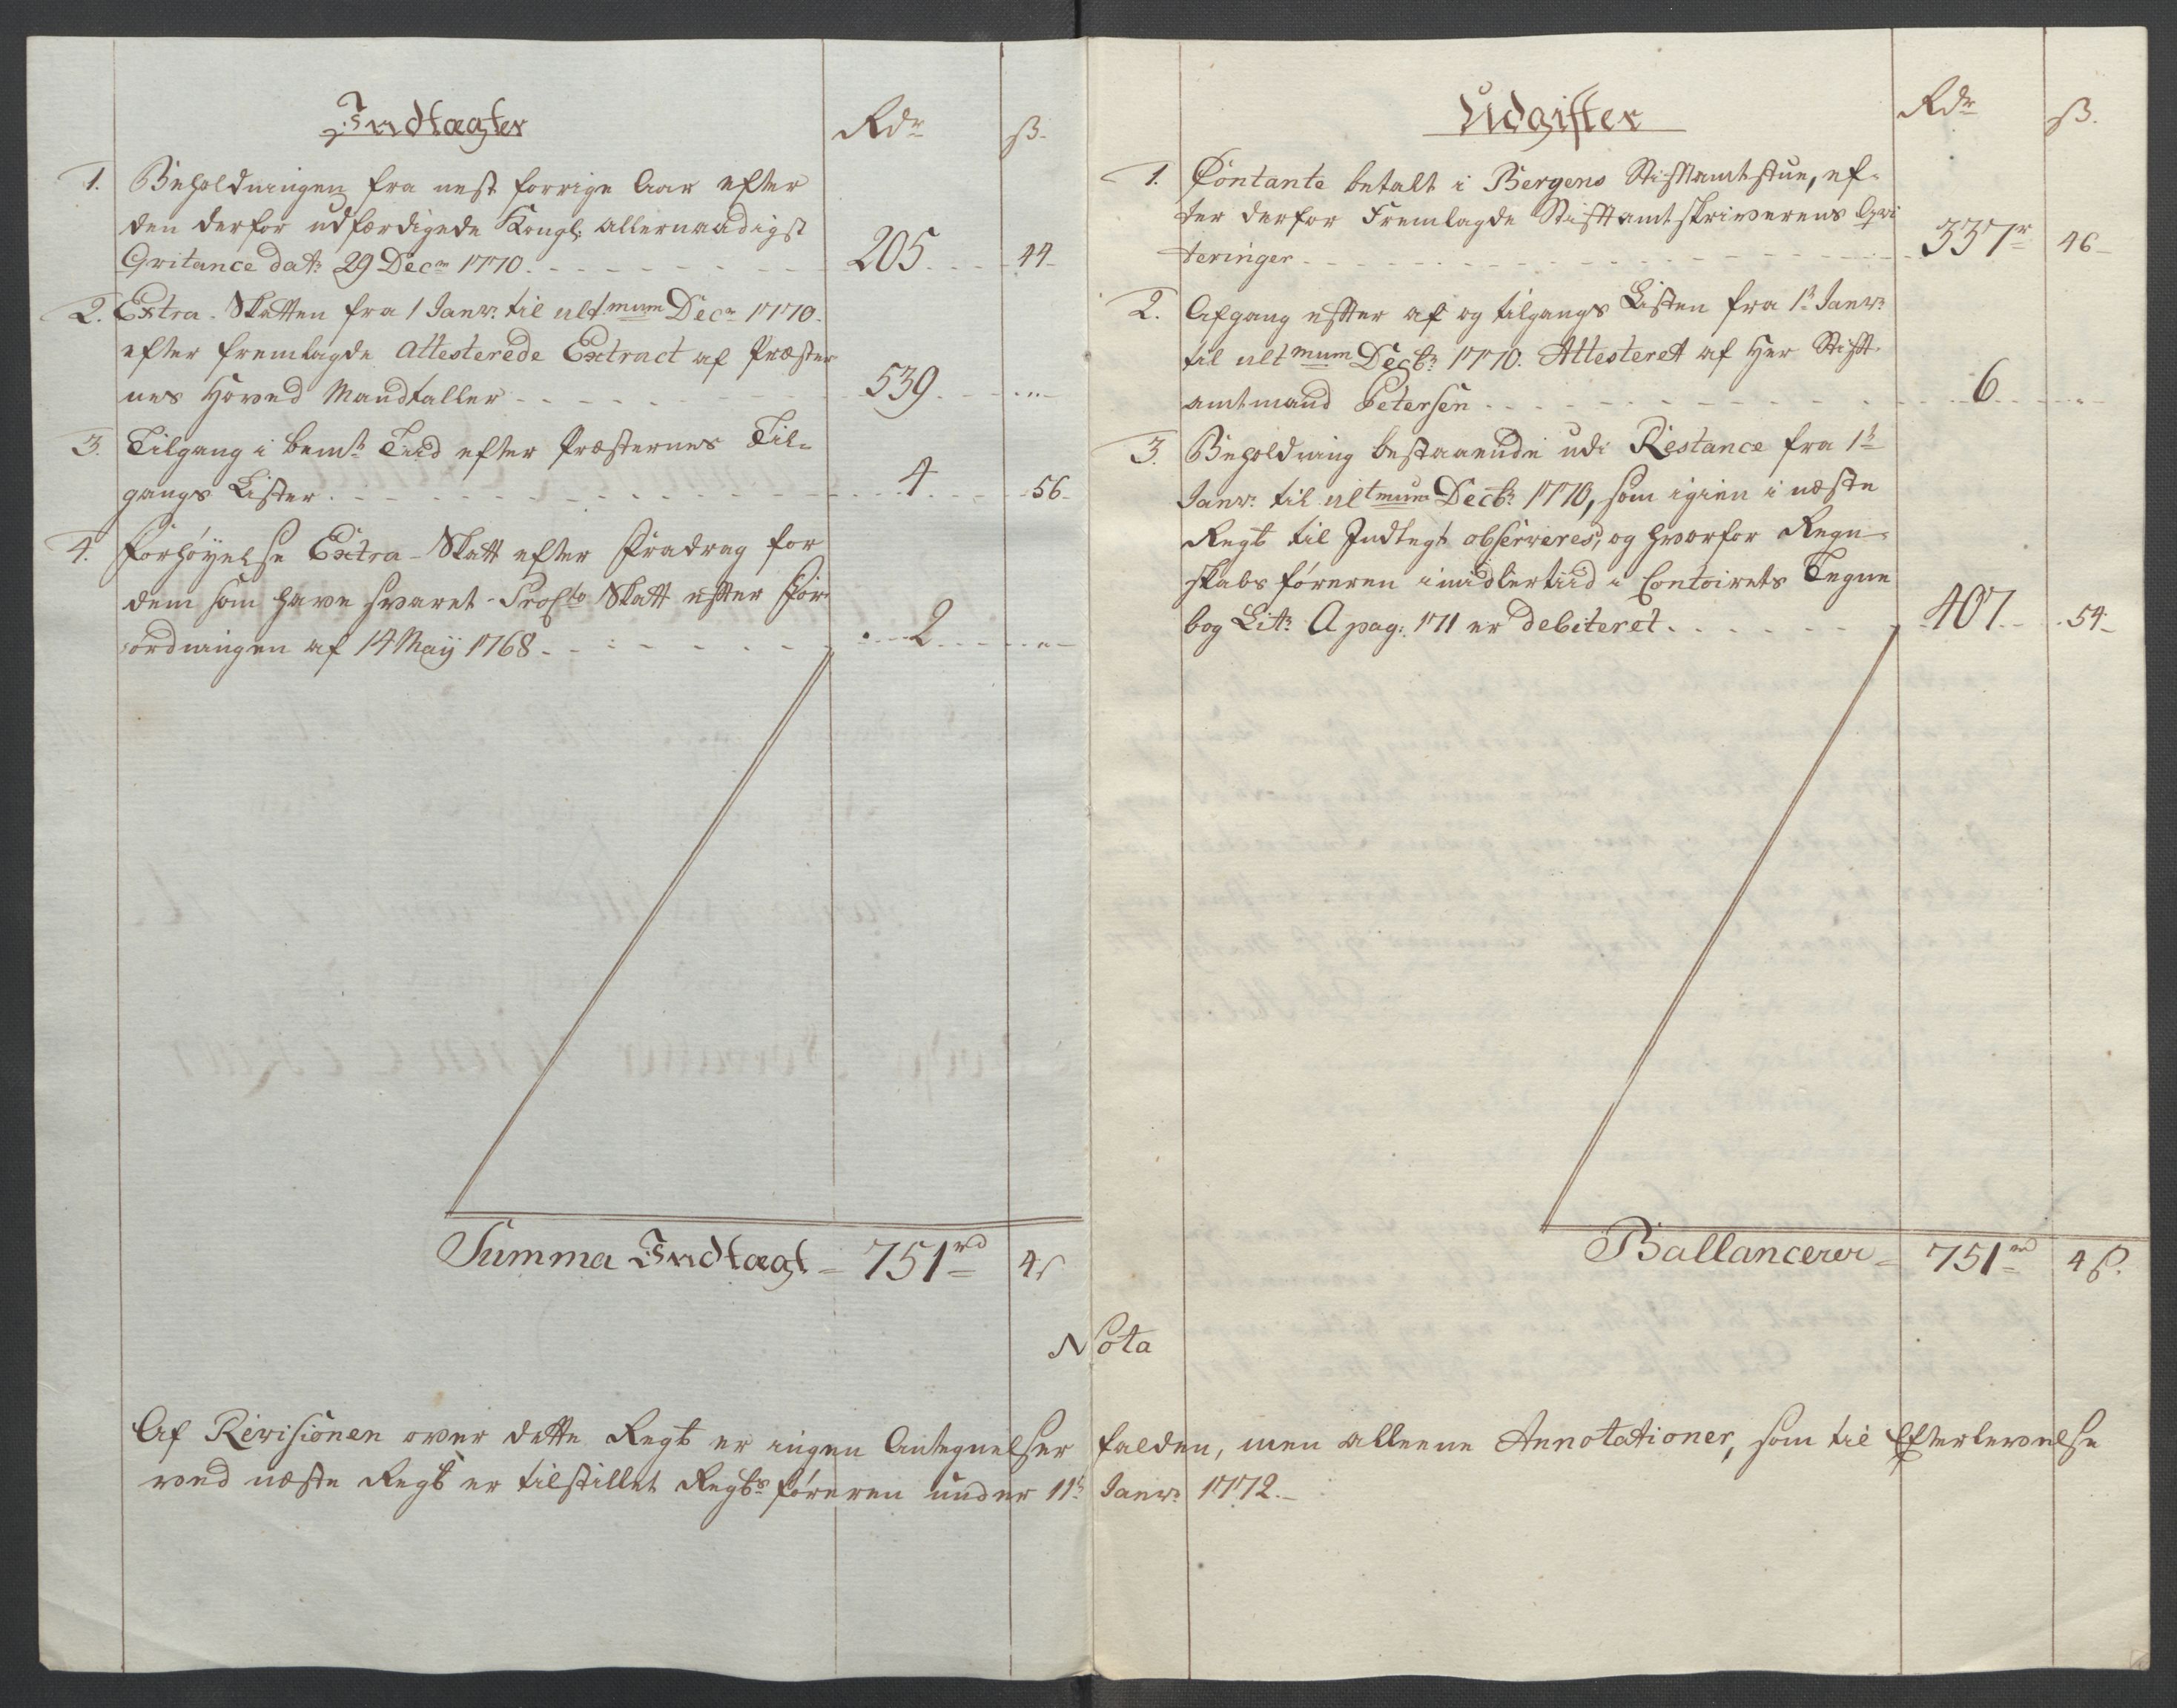 Indtægter
Rdr
ß.
1. Beholdningen fra nest forrige Aar efter
den derfor udfærdigede Kongl: allernaadigst
Qvitance dat: 29 Decr 1770. 205. 44
2. Extra-Skatten fra 1 Janr: til ultmum Decr 1770.
efter fremlagde Attesterede Extract af Præster
nes Hoved Mandtaller 539. „
3. Tilgang i bemte Tiid efter Præsternes Til-
gangs Lister 4. 56
4. Forhøyelse Extra-Skatt efter Fradrag for
dem som have svaret Procto Skatt efter For
ordningen af 14 Maij 1768. 2. „
Summa Indtægt 751rd 4ß
Udgifter
Rdr
ß.
1. Contante betalt i Bergens Stiftamtstue, ef-
ter derfor Fremlagde Stiftamtskriverens Qvi
teringer 337r 46
2. Afgang efter af og tilgangs Listen fra 1te Janr:
til ultmum Decbr 1770. Attesteret af Her Stift-
amtmand Petersen 6. „
3. Beholdning bestaaende udi Restance fra 1te
Janr: til ultmum Decbr: 1770, som igien i næste
Regsb til Indtegt observeres, og hvorfor Regn-
skabsføreren imidlertiid i Contoirets Tegne
bog Litr: A pag: 171 er debiteret 407. 54
Ballancerer 751rd 4ß.
Nota
Af Revisionen over dette Regsb er ingen Antegnelser falden, men alleene Annotationer, som til Efterlevelse
ved næste Regsb er tilstillet Regsbs føreren under 11te Janr: 1772.